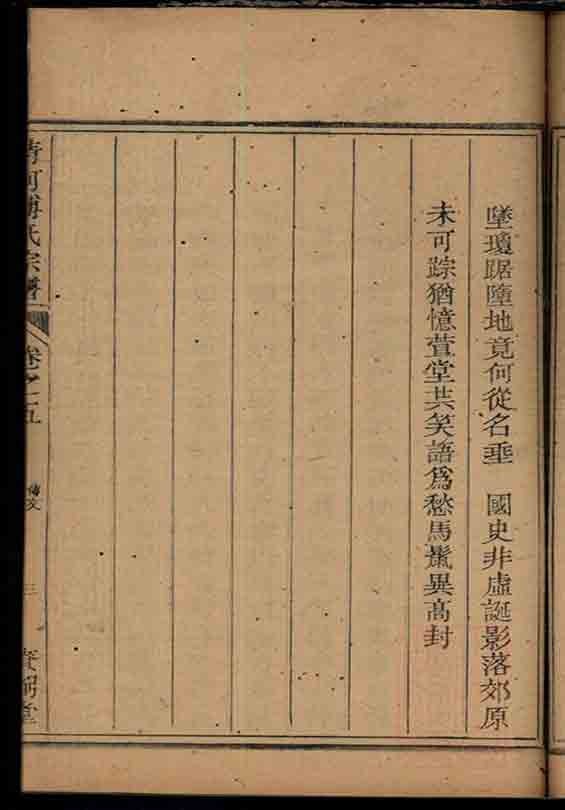 墜瓊踞墮地竟何從名垂　國史非虛誕影落郊原
未可踪猶憶萱堂共笑語爲愁馬鬛異高封
清河傅氏宗譜
卷之五
傳文
三